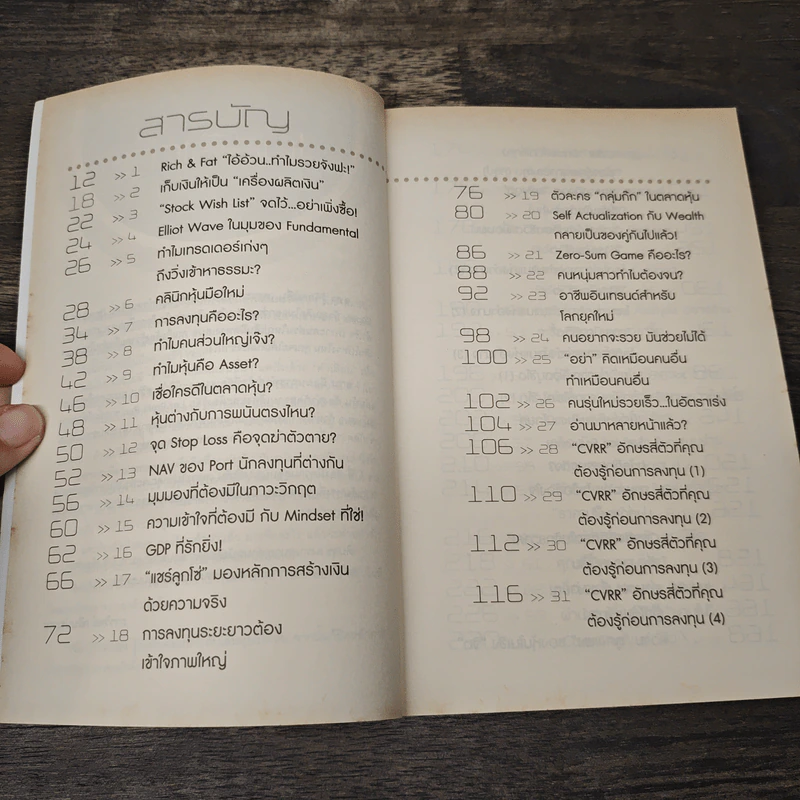 สารบัญ
12 >> 1 Rich & Fat “ไอ้อ้วน..ทำไมรวยจังฟะ!”
18 >> 2 เก็บเงินให้เป็น “เครื่องผลิตเงิน”
22 >> 3 “Stock Wish List” จดไว้...อย่าเพิ่งซื้อ!
24 >> 4 Elliot Wave ในมุมของ Fundamental
26 >> 5 ทำไมเทรดเดอร์เก่งๆ
ถึงวิ่งเข้าหาธรรมะ?
28 >> 6 คลินิกหุ้นมือใหม่
34 >> 7 การลงทุนคืออะไร?
38 >> 8 ทำไมคนส่วนใหญ่เจ๊ง?
42 >> 9 ทำไมหุ้นคือ Asset?
46 >> 10 เชื่อใครดีในตลาดหุ้น?
48 >> 11 หุ้นต่างกับการพนันตรงไหน?
50 >> 12 จุด Stop Loss คือจุดฆ่าตัวตาย?
52 >> 13 NAV ของ Port นักลงทุนที่ต่างกัน
56 >> 14 มุมมองที่ต้องมีในภาวะวิกฤต
60 >> 15 ความเข้าใจที่ต้องมี กับ Mindset ที่ใช่!
62 >> 16 GDP ที่รักยิ่ง!
66 >> 17 “แชร์ลูกโซ่” มองหลักการสร้างเงิน
ด้วยความจริง
72 >> 18 การลงทุนระยะยาวต้อง
เข้าใจภาพใหญ่
76 >> 19 ตัวละคร “กลุ่มกึ๊ก” ในตลาดหุ้น
80 >> 20 Self Actualization กับ Wealth
กลายเป็นของคู่กันไปแล้ว!
86 >> 21 Zero-Sum Game คืออะไร?
88 >> 22 คนหนุ่มสาวทำไมต้องจน?
92 >> 23 อาชีพอินเทรนด์สำหรับ
โลกยุคใหม่
98 >> 24 คนอยากจะรวย มันช่วยไม่ได้
100 >> 25 “อย่า” คิดเหมือนคนอื่น
ทำเหมือนคนอื่น
102 >> 26 คนรุ่นใหม่รวยเร็ว...ในอัตราเร่ง
104 >> 27 อ่านมาหลายหน้าแล้ว?
106 >> 28 “CVRR” อักษรสี่ตัวที่คุณ
ต้องรู้ก่อนการลงทุน (1)
110 >> 29 “CVRR” อักษรสี่ตัวที่คุณ
ต้องรู้ก่อนการลงทุน (2)
112 >> 30 “CVRR” อักษรสี่ตัวที่คุณ
ต้องรู้ก่อนการลงทุน (3)
116 >> 31 “CVRR” อักษรสี่ตัวที่คุณ
ต้องรู้ก่อนการลงทุน (4)